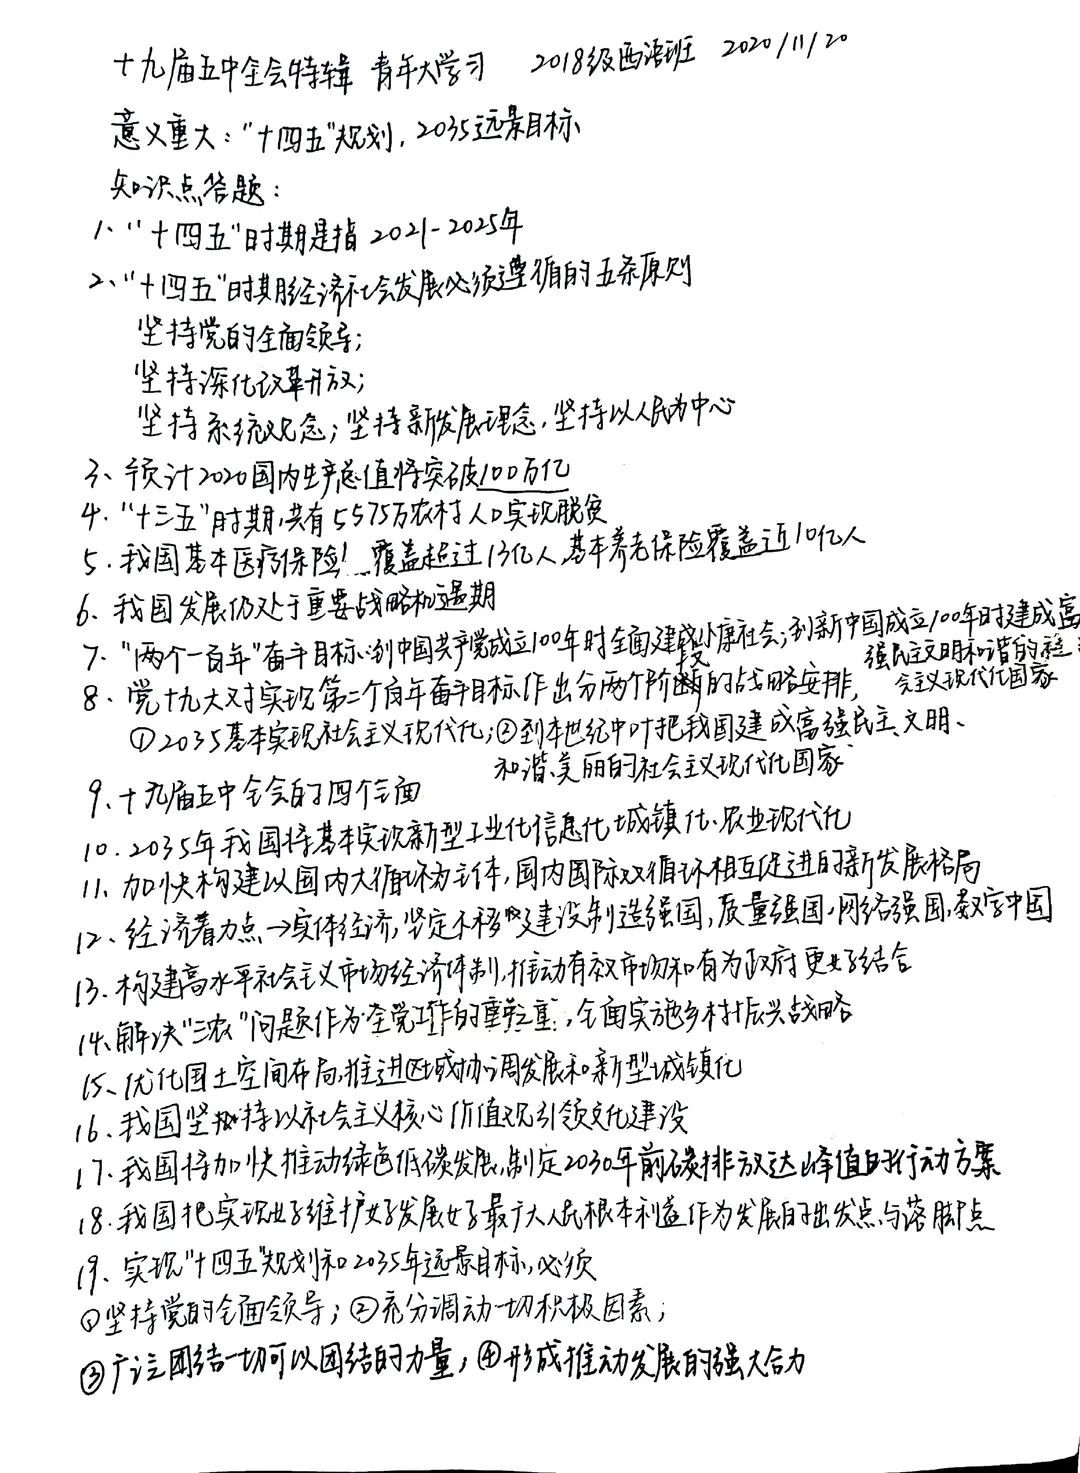 十九届五中全会特辑 青年大学习 2018级西语班 2020/11/20
意义重大："十四五"规划，2035远景目标
知识点答题：
1、"十四五"时期是指2021-2025年
2、"十四五"时期经济社会发展必须遵循的五条原则
坚持党的全面领导；
坚持深化改革开放；
坚持系统观念；坚持新发展理念，坚持以人民为中心
3、预计2020国内生产总值将突破100万亿
4."十三五"时期，共有5575万农村人口实现脱贫
5.我国基本医疗保险覆盖超过13亿人，基本养老保险覆盖近10亿人
6、我国发展仍处于重要战略机遇期
7、"两个一百年"奋斗目标：到中国共产党成立100年时全面建成小康社会；到新中国成立100年时建成富
强民主文明和谐的社
会主义现代化国家
8、党十九大对实现第二个百年奋斗目标作出分两个阶段的战略安排，
①2035基本实现社会主义现代化；②到本世纪中叶把我国建成富强民主、文明、
和谐、美丽的社会主义现代化国家
9、十九届五中全会的四个全面
10.2035年我国将基本实现新型工业化信息化城镇化、农业现代化
11、加快构建以国内大循环为主体，国内国际双循环相互促进的新发展格局
12、经济着力点→实体经济，坚定不移建设制造强国，质量强国，网络强国，数字中国
13.构建高水平社会主义市场经济体制，推动有效市场和有为政府更好结合
14、解决"三农"问题作为全党工作的重中之重，全面实施乡村振兴战略
15、优化国土空间布局，推进区域协调发展和新型城镇化
16、我国坚持以社会主义核心价值观引领文化建设
17、我国将加快推动绿色低碳发展，制定2030年前碳排放达峰值的行动方案
18、我国把实现好维护好发展好最广大人民根本利益作为发展的出发点与落脚点
19、实现"十四五"规划和2035年远景目标，必须
①坚持党的全面领导；②充分调动一切积极因素；
③广泛团结一切可以团结的力量；④形成推动发展的强大合力